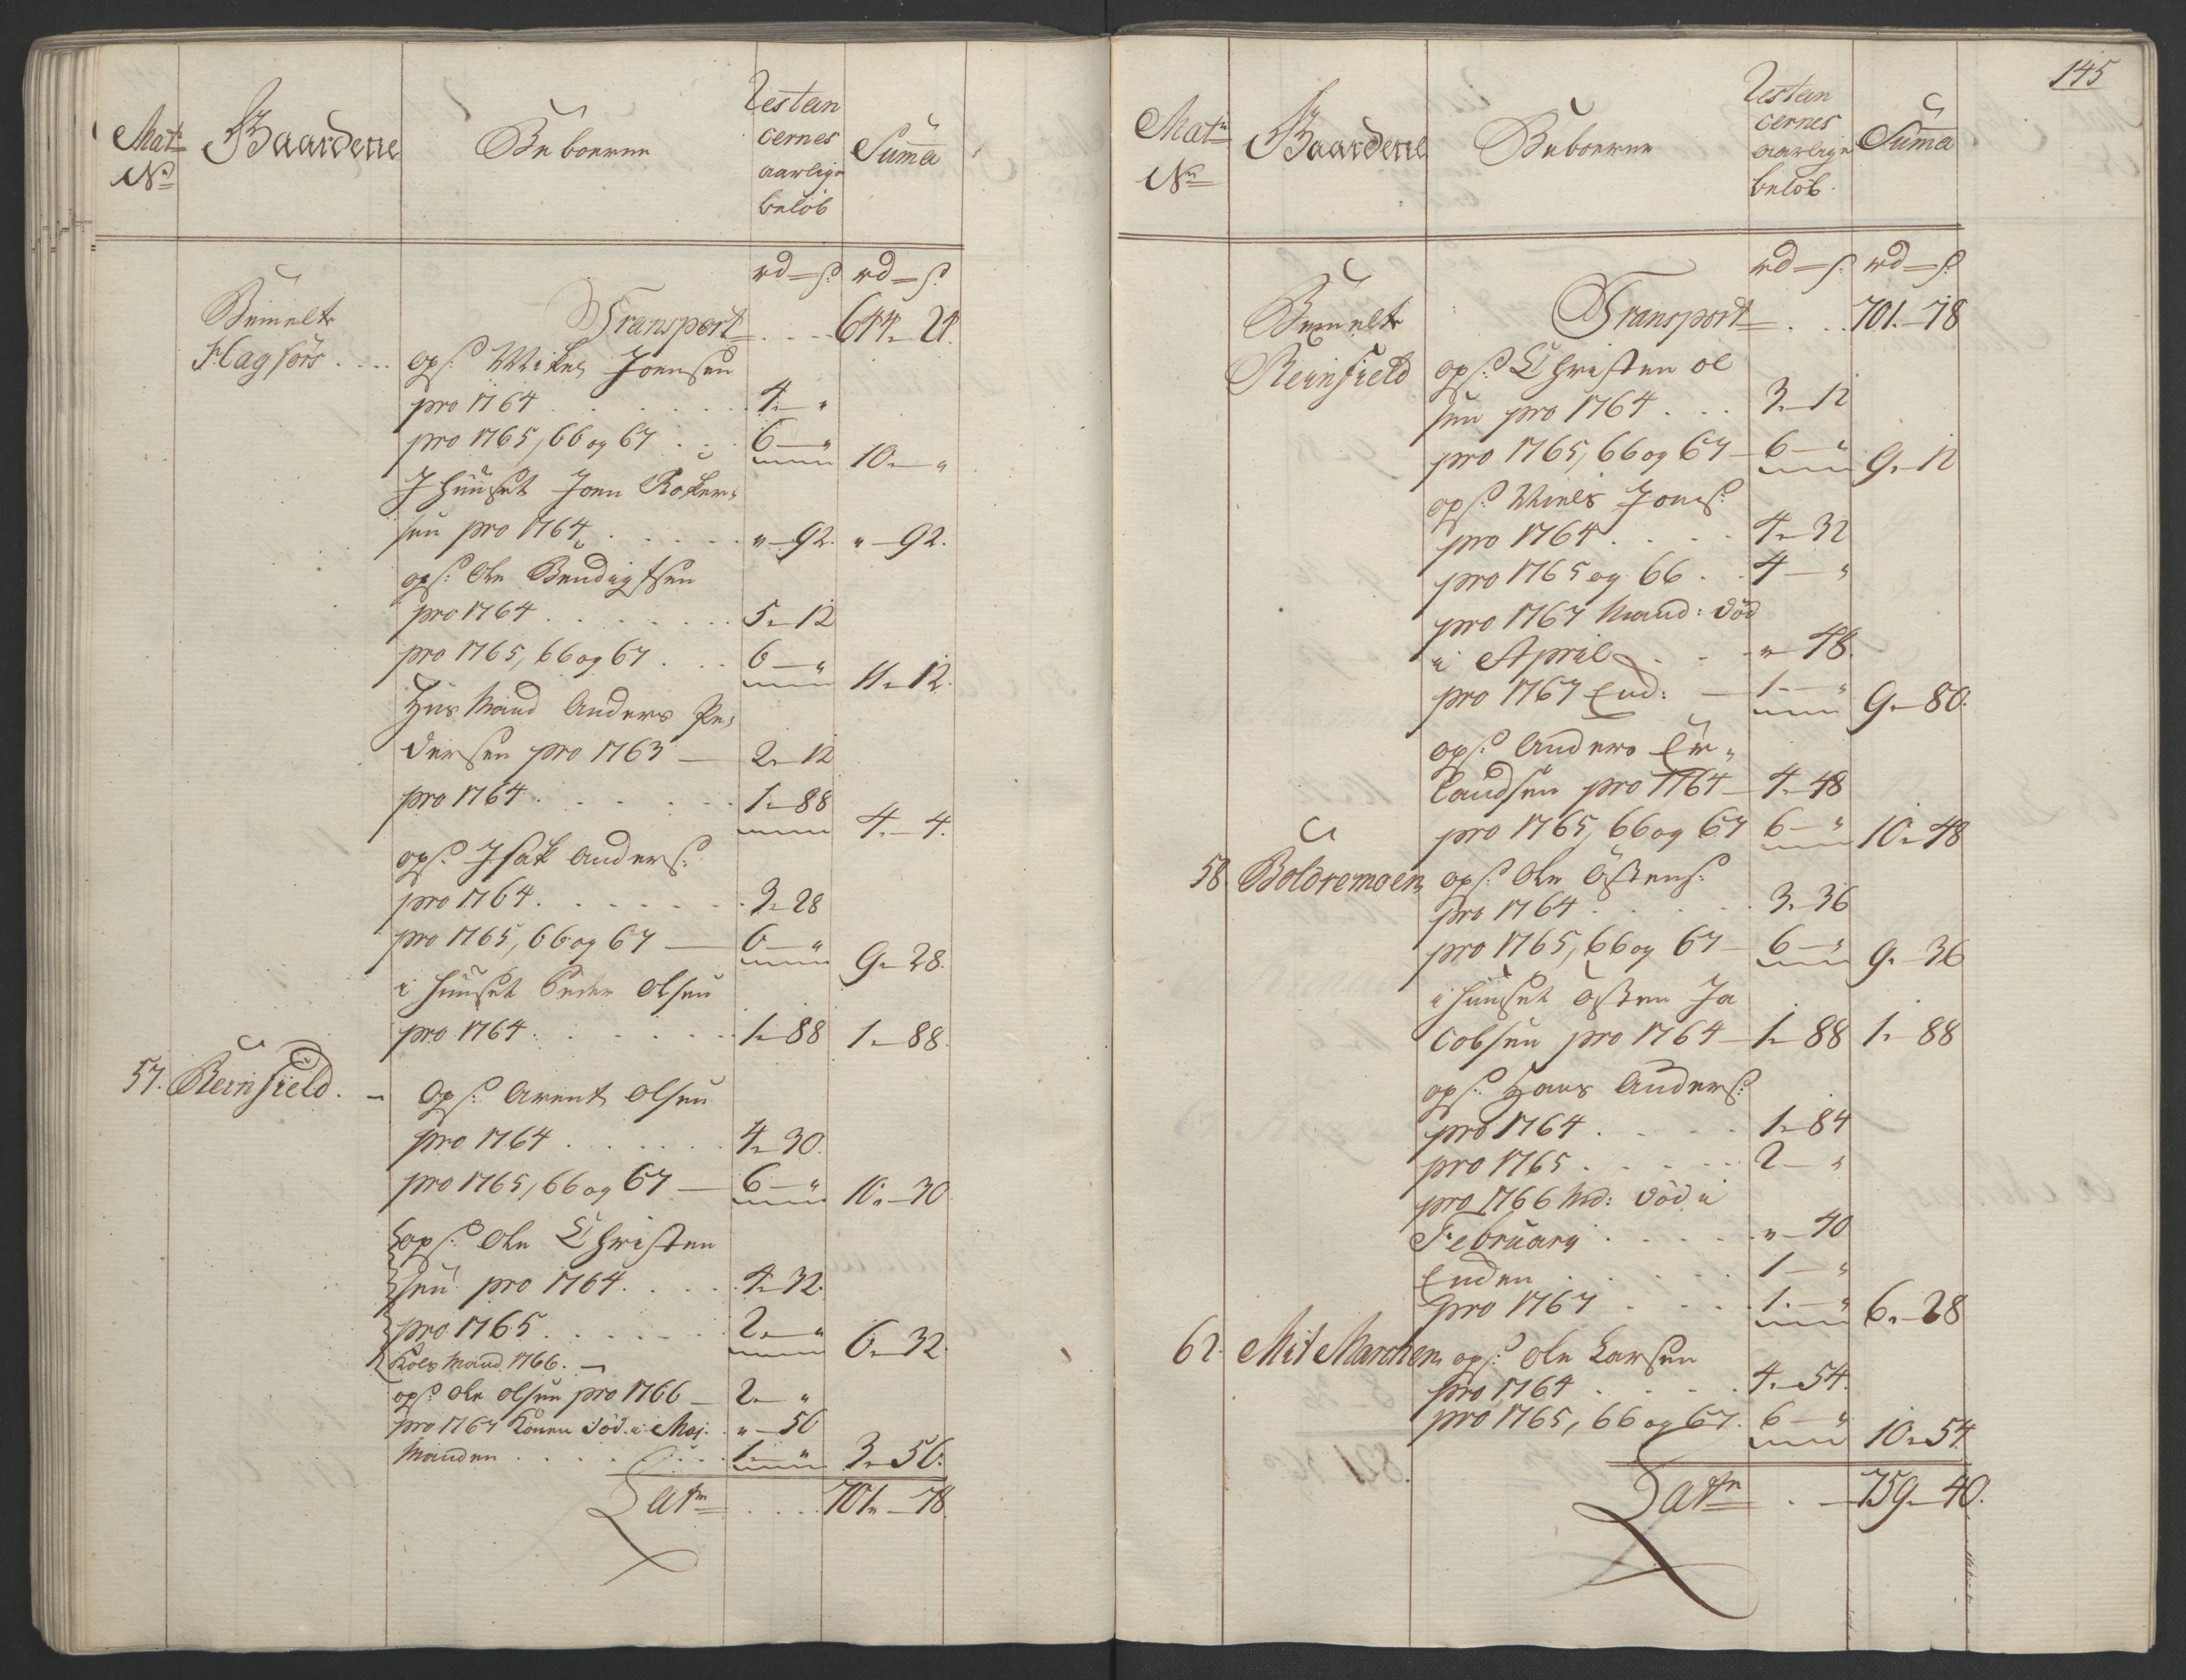 Mat: No
Gaardene
Beboerne
Restancernes aarlige beløb
Suma
rd – s: rd – s:
Bemelte Transport . . . 644 – 24.
Flagførs . . . ops: Mikel Joensen
pro 1764 . . . 4 – "
pro 1765, 66 og 67 . . 6 – " 10 – "
J Huuset Joen
sen pro 1764 . . . " – 92. " – 92.
ops: Ole Bendigtsen
pro 1764 . . . 5 – 12
pro 1765, 66 og 67 . . . 6 – " 11 – 12.
Huus Mand Anders Pe
dersen pro 1763 – 2 – 12
pro 1764 . . . 1 – 88 4 – 4.
ops: Isak Anders:
pro 1764 . . . 3 – 28
pro 1765, 66 og 67 – 6 – " 9 – 28.
i Huuset Peder Olsen
pro 1764 . . . 1 – 88 1 – 88.
57. Reinfield . – Ops: Arent Olsen
pro 1764 . . . 4 – 30.
pro 1765, 66 og 67 – 6 – " 10 – 30
ops: Ole Christen
sen pro 1764 . . . 4 – 32.
pro 1765 . . . 2 – " 6 – 32.
Mand 1766. –
ops: Ole Olsen pro 1766 – 2 – "
pro 1767 Konen død i Maj . " – 56
Manden . . . 1 – " 3 – 56.
Lat: . . . 701 – 78.
145
Mat: No
Gaardene
Beboerne
Restancernes aarlige beløb.
Suma
rd – s: rd – s:
Bemelte Transport . . . 701 – 78
Reinfield ops: Christen Ol
sen pro 1764 . . . 3 – 12
pro 1765, 66 og 67 – 6 – " 9 – 12
ops: Niels Jons:
pro 1764 . . . 4 – 32
pro 1765 og 66 . . 4 – "
pro 1767 Mand: død
i April . . . " – 48.
pro 1767 Enk: – 1 – " 9 – 80.
ops: Anders Er
landsen pro 1764 – 4 – 48
pro 1765, 66 og 67 6 – " 10 – 48
58 Boldremoen ops: Ole Østens:
pro 1764 . . . 3 – 36
pro 1765, 66 og 67 – 6 – " 9 – 36
i Huuset Østen Ja
cobsen pro 1764 – 1 – 88 1 – 88
ops: Hans Anders:
pro 1764 . . . 1 – 84
pro 1765 . . . 2 – "
pro 1766 Md: død i
February . . . " – 40
Enken . . . 1 – "
pro 1767 . . . 1 – " 6 – 28
62. Mit Marchen ops: Ole Larsen
pro 1764 . . . 4 – 54.
pro 1765, 66 og 67. 6 – " 10 – 54.
Lat: . – 759 – 40.